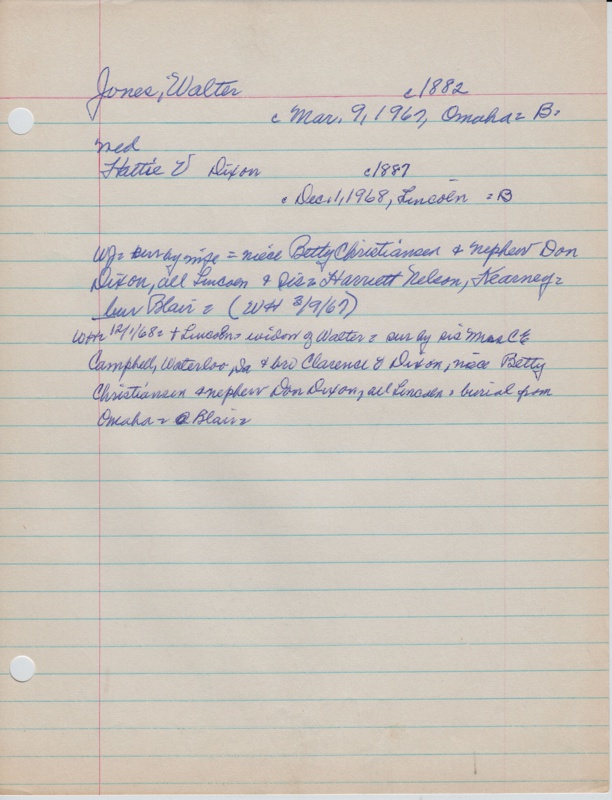 Jones, Walter c1882
c Mar. 9, 1967, Omaha = B =
med
Hattie V Dixon c1887
c Dec. 1, 1968, Lincoln = B
WJ = sur by = niece Betty Christiansen & nephew Don
Dixon, all Lincoln & sis = Harriett Nelson, Kearney =
bur Blair = (WH 3/9/67)
WH 12/1/68 = + Lincoln = widow of Walter = sur by sis Mrs C E
Campbell, Waterloo, Ia & bro Clarence E Dixon, niece Betty
Christiansen & nephew Don Dixon, all Lincoln = burial from
Omaha = @ Blair =